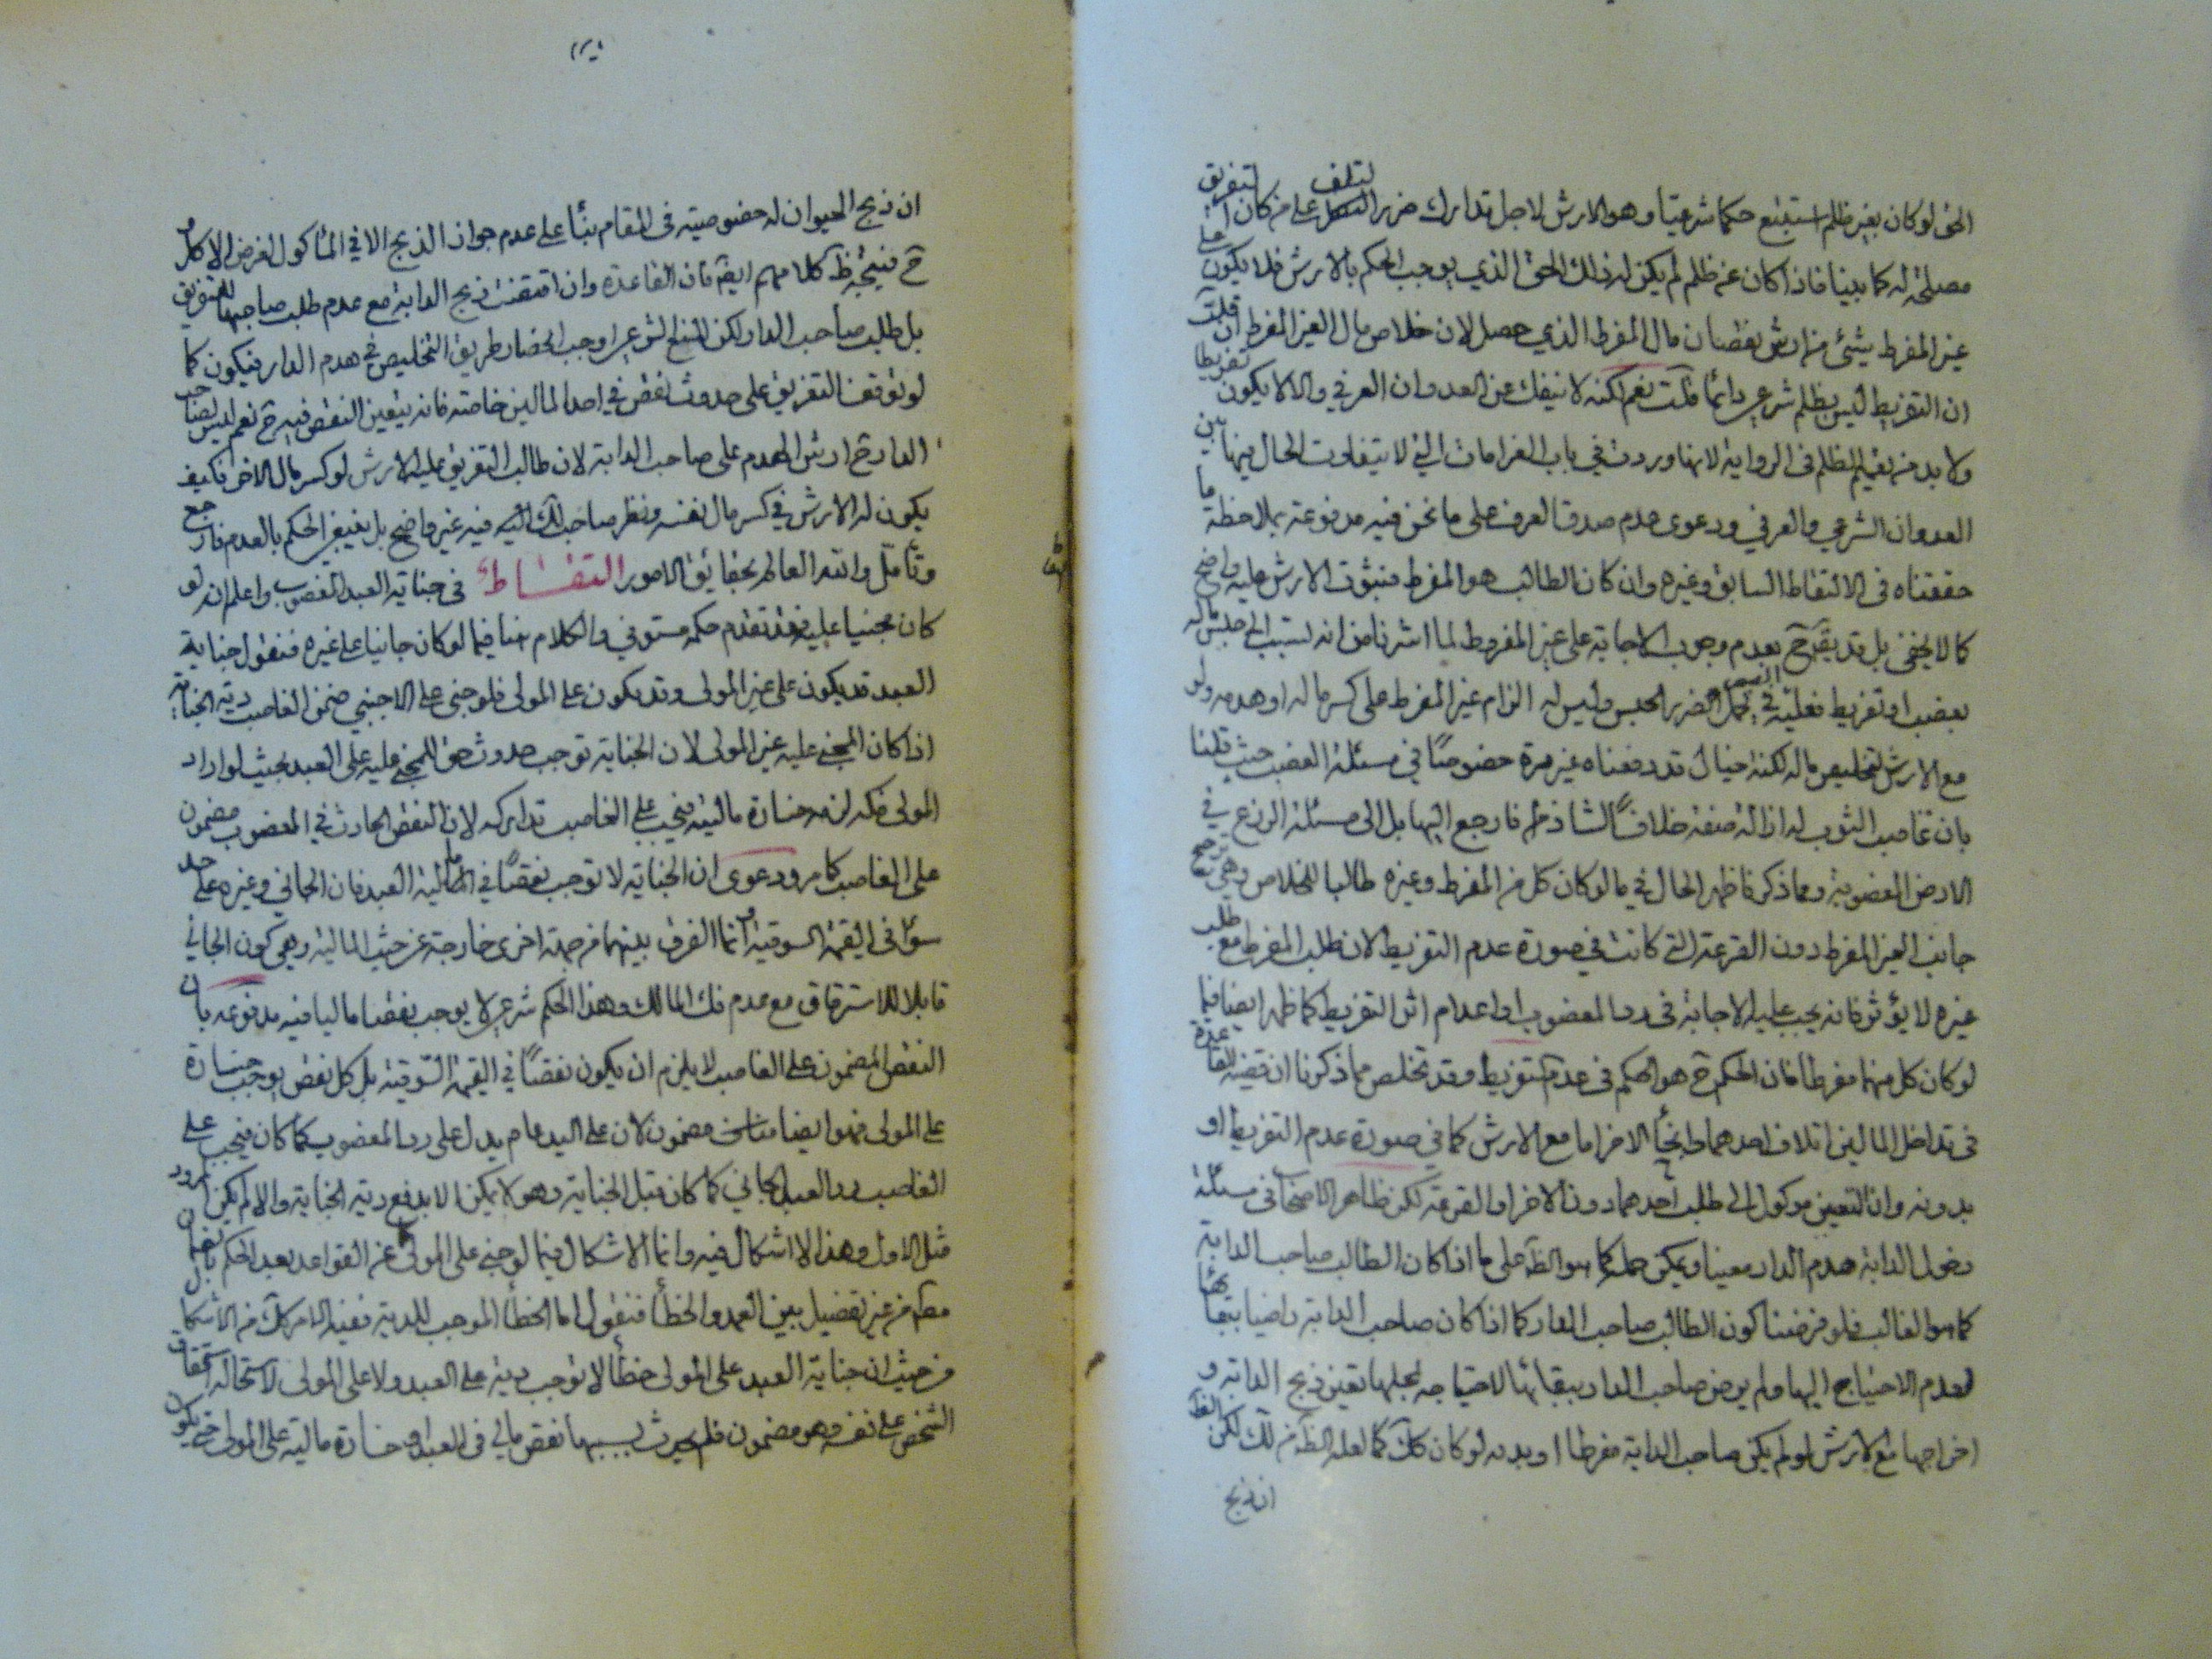 الحق لو كان بغير ظلم استتبع حكما شرعيا وهو الارش لاجل تدارك ضرر التلف على من كان التفريق
مصلحة له كما بينا فاذا كان عن ظلم لم يكن له ذلك الحق الذي يوجب الحكم بالارش فلا يكون على
غير المفرط شيئ من ارش نقصان مال المفرط الذي حصل لان خلاص مال الغير المفرط ان قلت
ان التفريط ليس بظلم شرعي دائما قلت نعم لكنه لا ينفك عن العدوان العرفي والا لا يكون تفريطا
ولا بد من تعميم الظلم في الرواية لانها وردت في باب الغرامات التي لا يتفاوت الحال فيها بين
العدوان الشرعي والعرفي ودعوى عدم صدق العرف على ما نحن فيه مدفوعة بملاحظة ما
حققناه في الالتقاط السابق وغيره وان كان الطالب هو المفرط فثبوت الارش عليه واضح
كما لا يخفى بل قد يقال ح بعدم وجوب الاجابة على غير المفرط لما اشرنا من انه تسبب الى حبس ماله
بغصب او تفريط فعليه تحمل الضرر الحبس وليس له الزام غير المفرط على كسر ماله او هدمه ولو
مع الارش لتخليص ماله لكنه خيال قد دفعناه غير مرة خصوصا في مسئلة الغصب حيث قلنا
بان غاصب الثوب له ازالة صبغه خلافا لشاذ فارجع اليها بل الى مسئلة الزرع في
الارض المغصوبة ومما ذكرنا ظهر الحال في ما لو كان كل من المفرط وغيره طالبا للخلاص وهي ترجيح
جانب الغير المفرط دون القرعة التي كانت في صورة عدم التفريط لان طلب المفرط مع طلب
غيره لا يؤثر فانه يجب عليه الاجابة في رد المغصوب او اعدام اثر التفريط كما ظهر ايضا فيما
لو كان كل منهما مفرطا فان الحكم ح هو الحكم في عدم التفريط وقد تخلص مما ذكرنا ان قضية القاعدة
في تداخل المالين اتلاف احدهما وانجاء الاخر اما مع الارش كما في صورة عدم التفريط او
بدونه وان التعيين موكول الى طلب احدهما دون الاخر او القرعة لكن ظاهر الاصحاب في مسئلة
دخول الدابة هدم الدار معينا ويمكن حمله كما هو الظ على ما اذا كان الطالب صاحب الدابة
كما هو الغالب فلو فرضنا كون الطالب صاحب الدار كما اذا كان صاحب الدابة راضيا ببقائها
لعدم الاحتياج اليها ولم يرض صاحب الدار ببقائها لاحتياجه لمحلها تعين ذبح الدابة و
اخراجها مع الارش لو لم يكن صاحب الدابة مفرطا او بدونه لو كان كك كما لعله الظ من لك لكن
ان ذبح
ان ذبح الحيوان له خصوصية في المقام بناء على عدم جواز الذبح الا في المأكول لغرض الاكل و
ح فيتجه ظ كلامهم ايض فان القاعدة وان اقتضت ذبح الدابة مع عدم طلب صاحبها للتفريق
بل طلب صاحب الدار لكن المنع الشرعي اوجب انحصار طريق التخليص في هدم الدار فيكون كما
لو توقف التفريق على حدوث نقص في احد المالين خاصة فانه يتعين النقص فيه ح نعم ليس لصاحب
الدار ح ارش الهدم على صاحب الدابة لان طالب التفريق عليه الارش لو كسر مال الاخر فكيف
يكون له الارش في كسر مال نفسه ونظر صاحب لك اليه فيه غير واضح بل ينبغي الحكم بالعدم فارجع
وتأمل والله العالم بحقايق الامور التقاط في جناية العبد المغصوب واعلم انه لو
كان مجنيا عليه فقد تقدم حكمه مستوفي والكلام هنا فيما لو كان جانيا على غيره فنقول جناية
العبد قد يكون على غير المولى وقد يكون على المولى فلو جنى على الاجنبي ضمن الغاصب دية الجناية
اذا كان المجني عليه غير المولى لان الجناية توجب حدوث حق للمجني عليه على العبد بحيث لو اراد
المولى فكه لزمه خسارة مالية فيجب على الغاصب تداركه لان النقص الحادث في المغصوب مضمون
على الغاصب كما مر ودعوى ان الجناية لا توجب نقصا في مالية العبد فان الجاني وغيره على حد
سواء في القيمة السوقية وانما الفرق بينهما من جهة اخرى خارجة عن حيث المالية وهي كون الجاني
قابلا للاسترقاق مع عدم فك المالك وهذا الحكم شرعي لا يوجب نقصا ماليا فيه مدفوعة بان
النقص المضمون على الغاصب لا يلزم ان يكون نقصا في القيمة السوقية بل كل نقص يوجب خسارة
على المولى فهو ايضا مضمون لان على اليد عام يدل على رد المغصوب كما كان فيجب على
الغاصب رد العبد الجاني كما كان قبل الجناية وهو لا يمكن الا بدفع دية الجناية والا لم يكن المردود
مثل الاول وهذا لا اشكال فيه وانما الاشكال فيما لو جنى على المولى عن القواعد بعد الحكم بالضمان
مط من غير تفصيل بين العمد والخطأ فنقول اما الخطأ الموجب للدية ففيه الامر كك من الاشكال
من حيث ان جناية العبد على المولى خطأ لا توجب دية على العبد ولا على المولى لاستحالة استحقاق
الشخص على نفسه وهو مضمون فلم يحدث بسببها نقص مالي في العبد او خسارة مالية على المولى حتى يكون